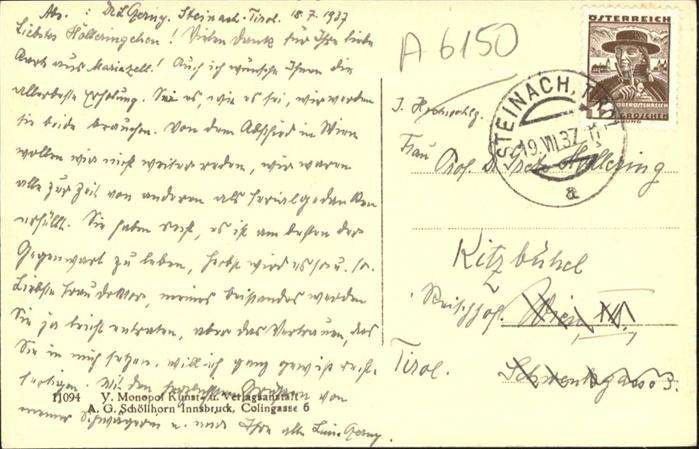 Abs. : Dr. L. Gerny. Steinach. Tirol. 18.7.1937
Liebstes Hölleringchen! Vielen Dank für Ihre liebe
Karte aus Mariazell! Auch ich wünsche Ihnen die
allerbeste Erholung. Sei es, wie es sei, wir werden
sie beide brauchen. Von dem Abschied in Wien
wollen wir nicht weiter reden, wir waren
alle zur Zeit von anderen als Ferialgedanken
erfüllt. Sie haben recht, es ist am besten der
Gegenwart zu leben, Herbst wird es so u. so.
Liebste Frau Doktor, meines Beistandes werden
Sie ja leicht entraten, aber das Vertrauen, das
Sie in mich setzen, will ich ganz gewiss recht-
fertigen. Mit den herzlichsten Grüssen von
meiner Schwägerin u. mir Ihre alte Gerny.
11094 V. Monopol Kunst- u. Verlagsanstalt
A. G. Schöllhorn Innsbruck, Colingasse 6
A 6150
ÖSTERREICH
OBERÖSTERREICH
12 GROSCHEN
STEINACH, TIROL
19.VII.37
a
Frau Prof. Dr. Höllering
Kitzbühel
Reischhof.
Wien IV.,
Tirol.
Schwindgasse 3.